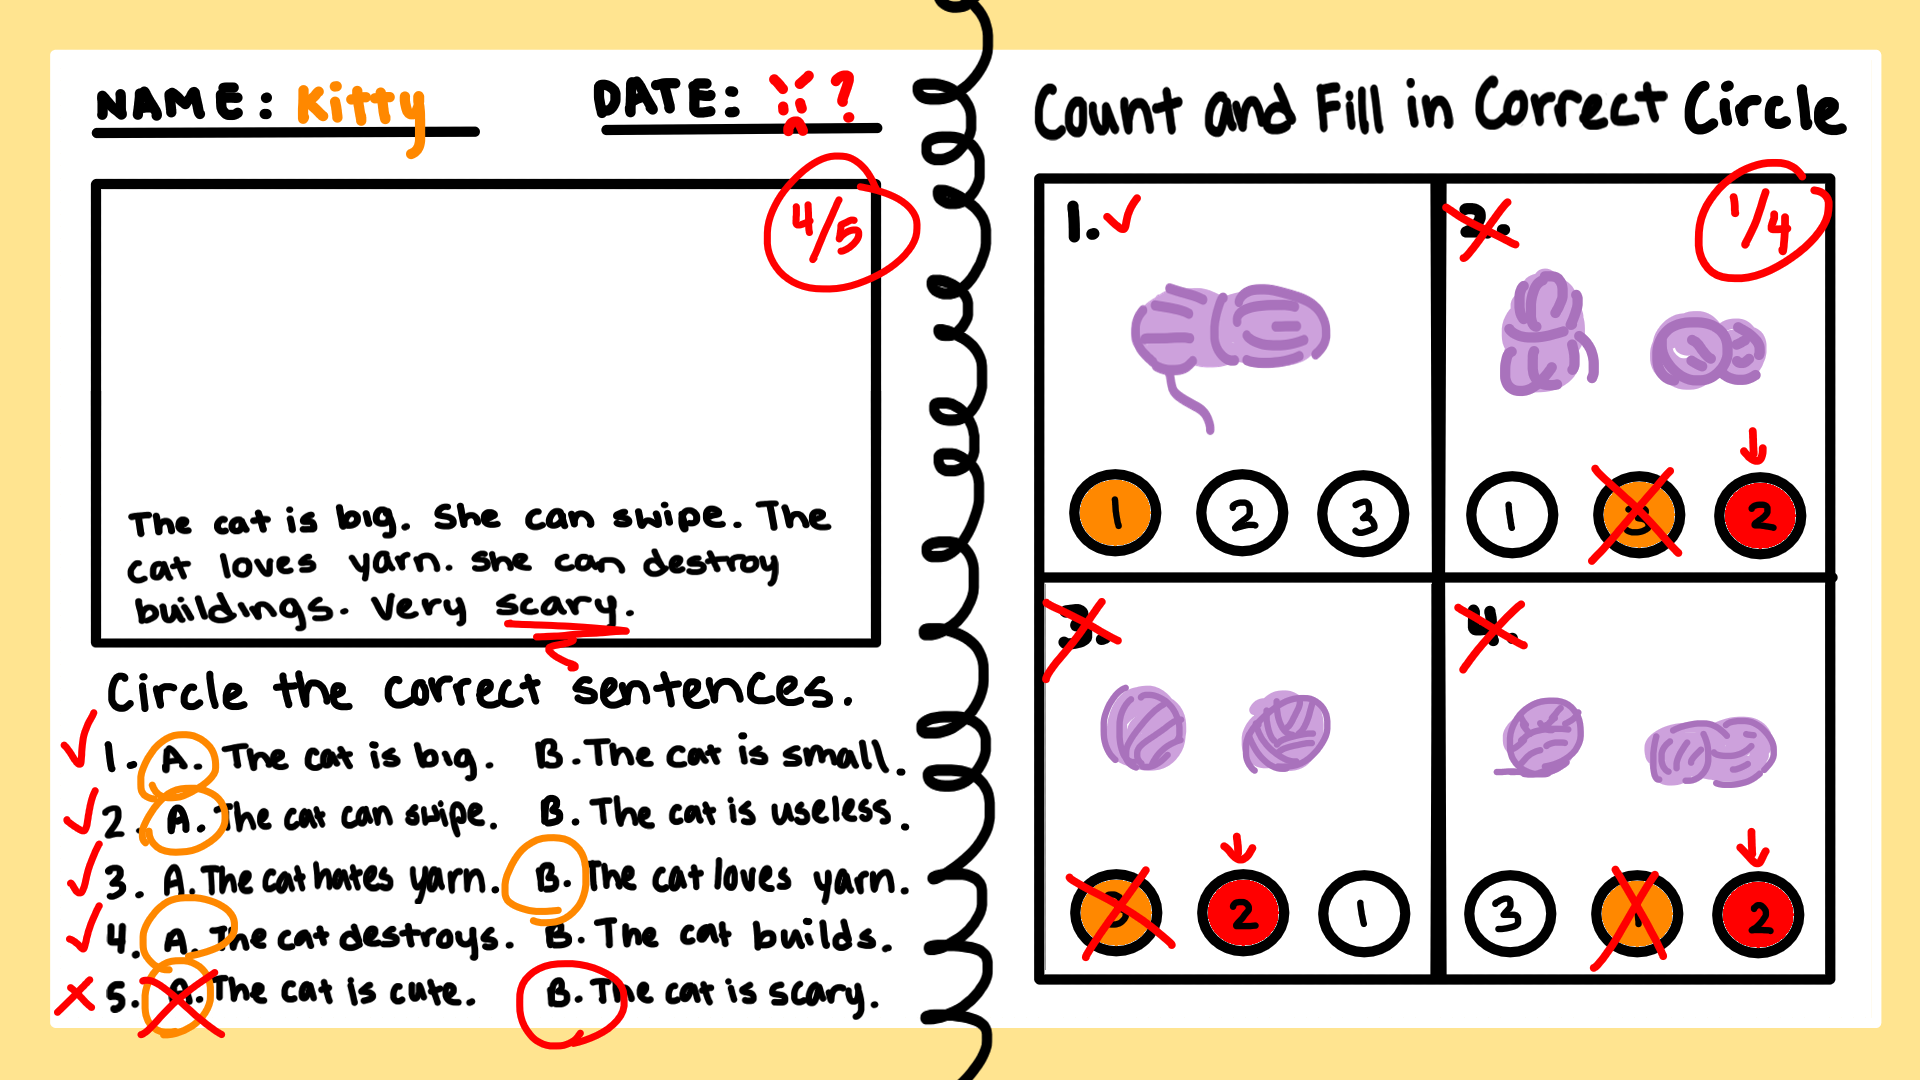 NAME: Kitty
DATE: ?
4/5
The cat is big. She can swipe. The
cat loves yarn. she can destroy
buildings. Very scary.
Circle the correct sentences.
1. A. The cat is big. B. The cat is small.
2. A. The cat can swipe. B. The cat is useless.
3. A. The cat hates yarn. B. The cat loves yarn.
4. A. The cat destroys. B. The cat builds.
5. A. The cat is cute. B. The cat is scary.
Count and Fill in Correct Circle
1.
1 2 3
2.
1/4
1 3 2
3.
3 2 1
4.
3 1 2